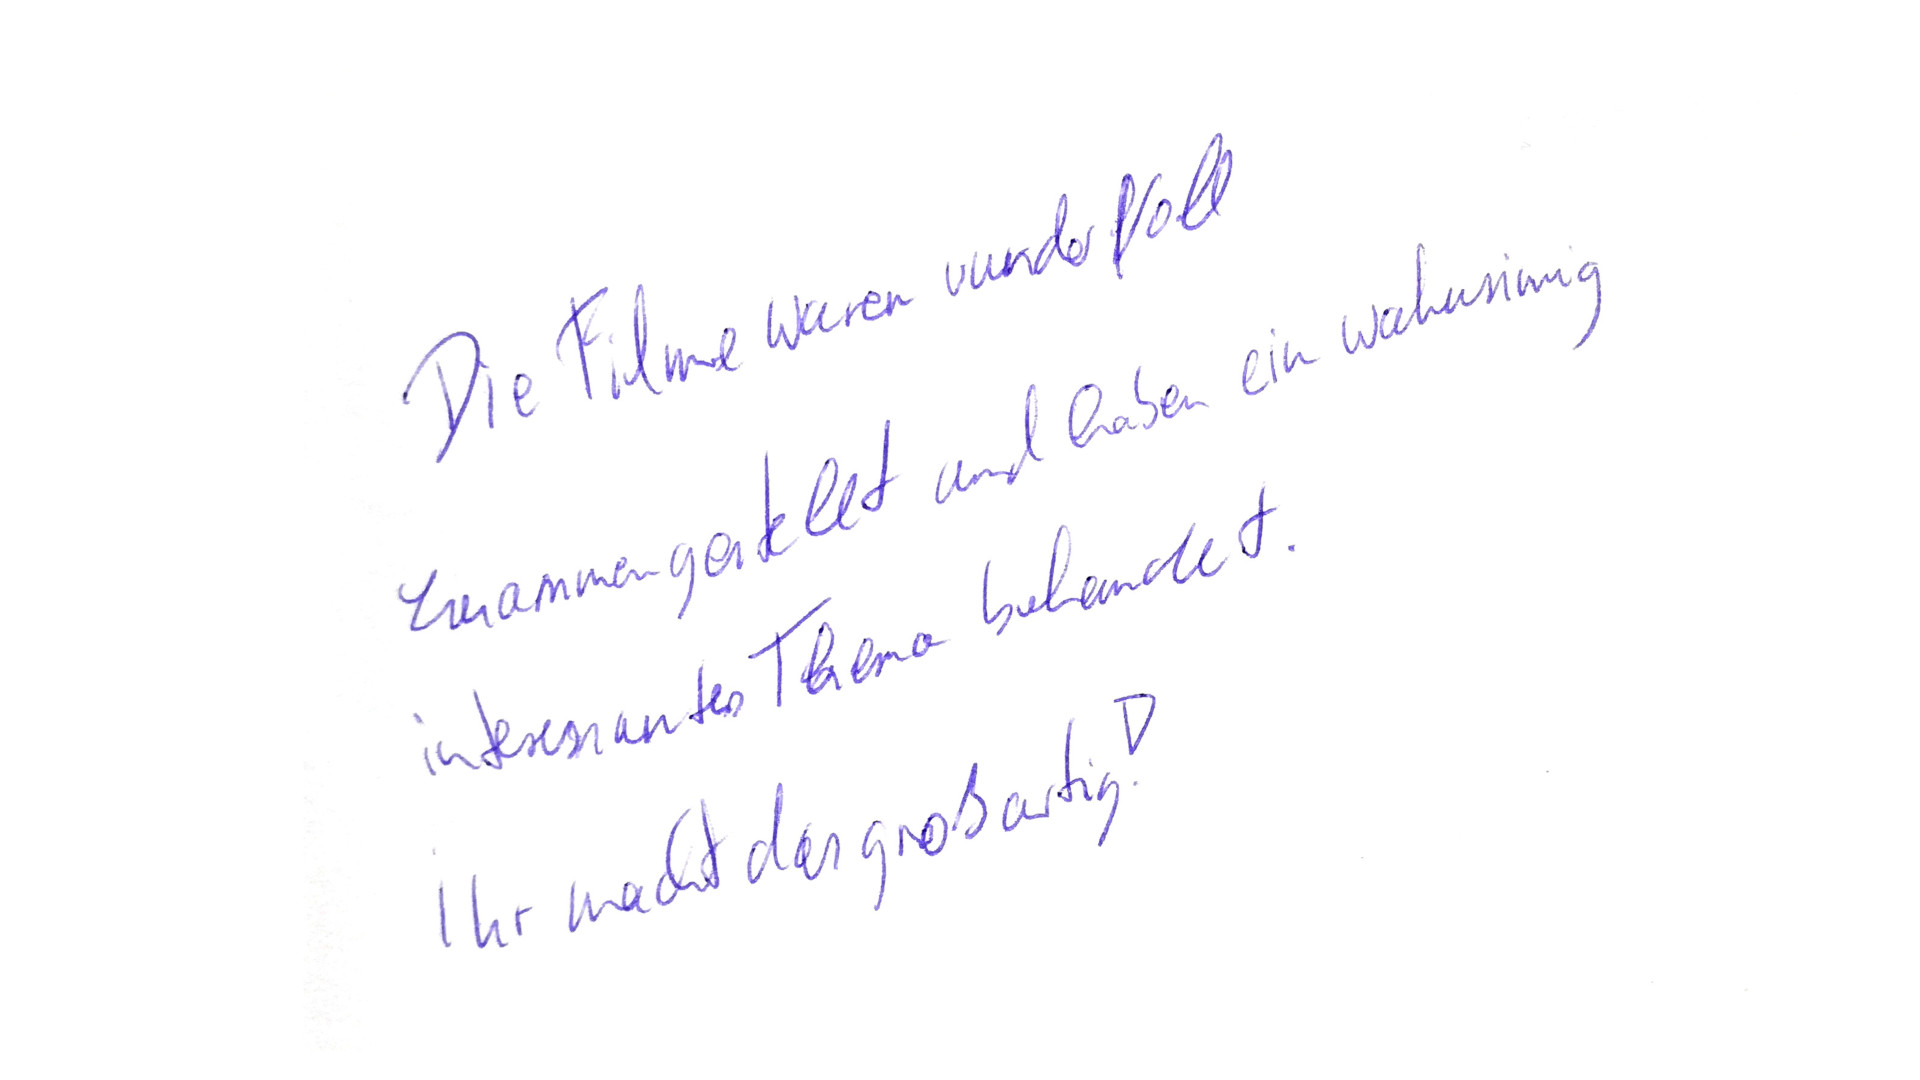 Die Filme waren wundervoll
zusammengestellt und haben ein wahnsinnig
interessantes Thema behandelt.
Ihr macht das großartig!